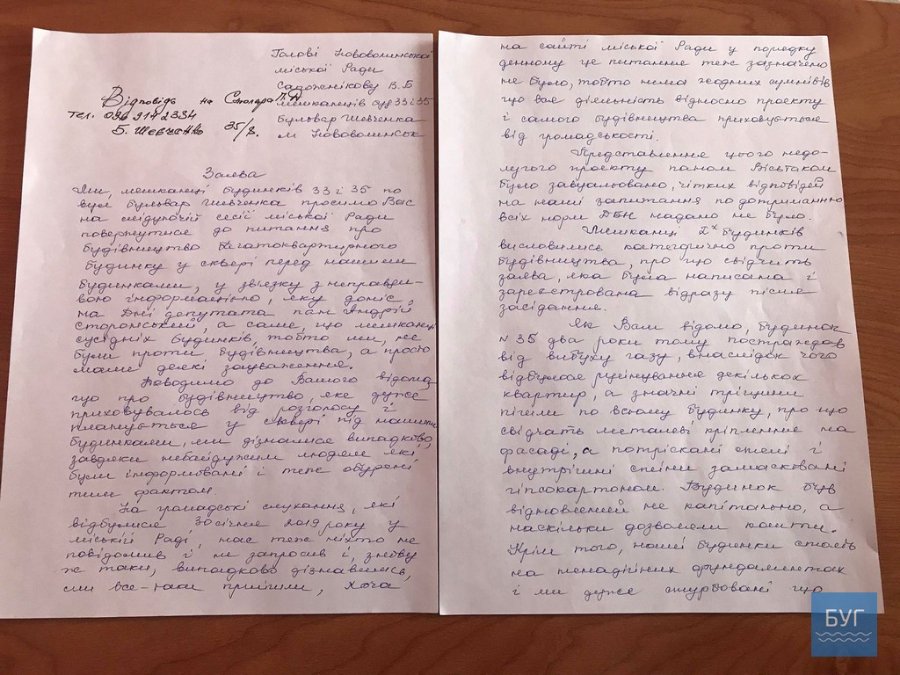 Голові Нововолинської
міської Ради
Сапоженікову В.Б
мешканців буд 33 і 35
бульвар Шевченка
м Нововолинськ
Відповідь на
тел. 096 914 2334
Б. Шевченко 35/8.
Заява
Ми, мешканці будинків 33 і 35 по
вул бульвар Шевченка просимо Вас
на слідуючій сесії міської Ради
повернутися до питання про
будівництво багатоквартирного
будинку у сквері перед нашими
будинками, у зв'язку з неправди-
вою інформацією, яку доніс
на Дні депутата пан Андрій
Сторонський, а саме, що мешканці
сусідніх будинків, тобто ми, не
були проти будівництва, а просто
мали деякі зауваження.
Доводимо до Вашого відома,
що про будівництво, яке дуже
приховувалось від розголосу і
планується у сквері під нашими
будинками, ми дізналися випадково,
завдяки небайдужим людям які
були інформовані і теж обурені
тим фактом
На громадські слухання, які
відбулися 30 січня 2019 року у
міській Раді, нас теж ніхто не
повідомив і не запросив і, знову
ж таки, випадково дізнавшись,
ми все-таки прийшли, хоча
на сайті міської Ради у порядку
денному це питання теж зазначено
не було, тобто нема жодних сумнівів
що вся діяльність відносно проєкту
і самого будівництва приховується
від громадськості.
Представлення цього недо-
лугого проекту паном Війтаком
було завуальовано, чітких відповідей
на наші запитання по дотриманню
всіх норм ДБН надано не було.
Мешканці 2х будинків
висловились категорично проти
будівництва, про що свідчить
заява, яка була написана і
зареєстрована відразу після
засідання.
Як Вам відомо, будинок
№35 два роки тому постраждав
від вибуху газу, внаслідок чого
відбулося руйнування декількох
квартир, а значні тріщини
пішли по всьому будинку, про що
свідчать металеві кріплення на
фасаді, а потріскані стелі і
внутрішні стіни замасковані
гіпсокартоном. Будинок був
відновлений не капітально, а
наскільки дозволяли кошти.
Крім того, наші будинки стоять
на ненадійних фундаментах
і ми дуже стурбовані що
БУГ